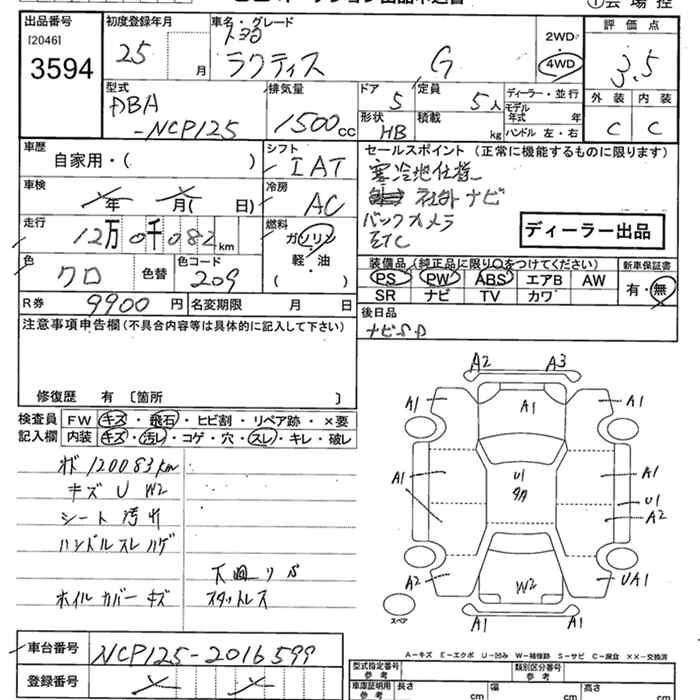 出品番号
[2046]
3594
初度登録年月
25 月
車名・グレード
トヨタ
ラクティス G
2WD・
4WD
①会場控
評価点
3.5
外装 内装
C C
型式
DBA
-NCP125
排気量
1500cc
ドア 5
定員 5人
形状 HB
積載 kg
ディーラー・並行
モデル年式 年
ハンドル 左・右
車歴
自家用・( )
シフト
IAT
車検
年 月( 日)
冷房
AC
走行
12万0千082km
燃料
ガソリン
軽・油
( )
色
クロ
色替
色コード
209
R券 9900円
名変期限 月 日
セールスポイント (正常に機能するものに限ります)
寒冷地仕様
社外ナビ
バックカメラ
ETC
ディーラー出品
装備品 (純正品に限り○をつけてください)
PS PW ABS エアB AW
SR ナビ TV カワ
新車保証書
有・無
後日品
ナビSD
注意事項申告欄(不具合内容等は具体的に記入して下さい)
修復歴 有 [箇所 ]
検査員記入欄
FW キズ・飛石・ヒビ割・リペア跡・×要
内装 キズ・汚レ・コゲ・穴・スレ・キレ・破レ
120083km
キズ U W2
シート汚れ
ハンドルスレハゲ
下廻りS
ホイルカバーキズ スタットレス
A2 A3
A1 A1 A1
A1 U1 A1
U1
A2
A2 W2 UA1
A1 A1
スペア
A-キズ E-エクボ U-凹み W-補修跡 S-サビ C-腐食 ××-交換済
車台番号 NCP125-2016599
登録番号
型式指定番号 参考
類別区分番号 参考
車庫証明用 参考
長さ cm
幅 cm
高さ cm